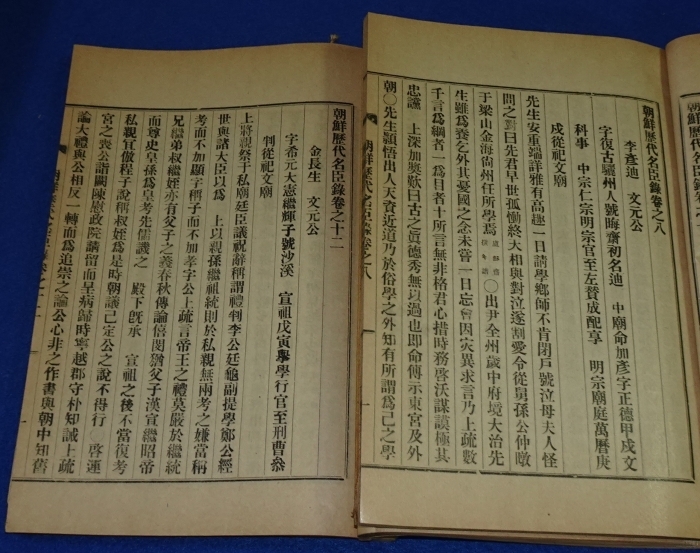 朝鮮歷代名臣錄卷之八
李彥迪 文元公
字復古驪州人號晦齋初名迪 中廟命加彥字正德甲戌文
科事 中宗仁宗明宗官至左贊成配享 明宗廟庭萬曆庚
戌從祀文廟
先生安重端詳雅有高趣一日請學鄉師不肯閉戶號泣母夫人怪
問之對曰先君早世孤慟終大相與對泣遂割愛令從舅孫公仲暾
于梁山金海尙州任所學焉 ○出尹全州歲中府境大治先
生雖爲養乞外其憂國之念未嘗一日忘會因灾異求言乃上疏數
千言爲綱者一爲目者十所言無非格君心措時務啓沃謀謨極其
忠讜 上深加奬歎曰古之眞德秀無以過也即命傳示東宮及外
朝○先生穎悟出人天資近道乃於俗學之外知有所謂爲己之學
朝鮮歷代名臣錄卷之八
朝鮮歷代名臣錄卷之十二
金長生 文元公
字希元大憲繼輝子號沙溪 宣祖戊寅擧學行官至刑曹叅
判從祀文廟
上將親祭于私廟廷臣議祝辭稱謂禮判李公廷龜副提學鄭公經
世與諸大臣以爲 上以親孫繼祖統則於私親無兩考之嫌當稱
考而不加顯字稱子而不加孝字公上疏言帝王之禮莫嚴於繼統
兄繼弟叔繼姪亦有父子之義春秋傳論僖閔猶父子漢宣繼昭帝
而尊史皇孫爲皇考先儒譏之 殿下旣承 宣祖之後不當復考
私親宜倣程子說稱叔姪爲是時朝議已定公之說不得行 啓運
宮之喪公詣闕陳慰政院請留而呈病歸時寧越郡守朴知誡上疏
論大禮與公相反一轉而爲追崇之論公心非之作書與朝中知舊